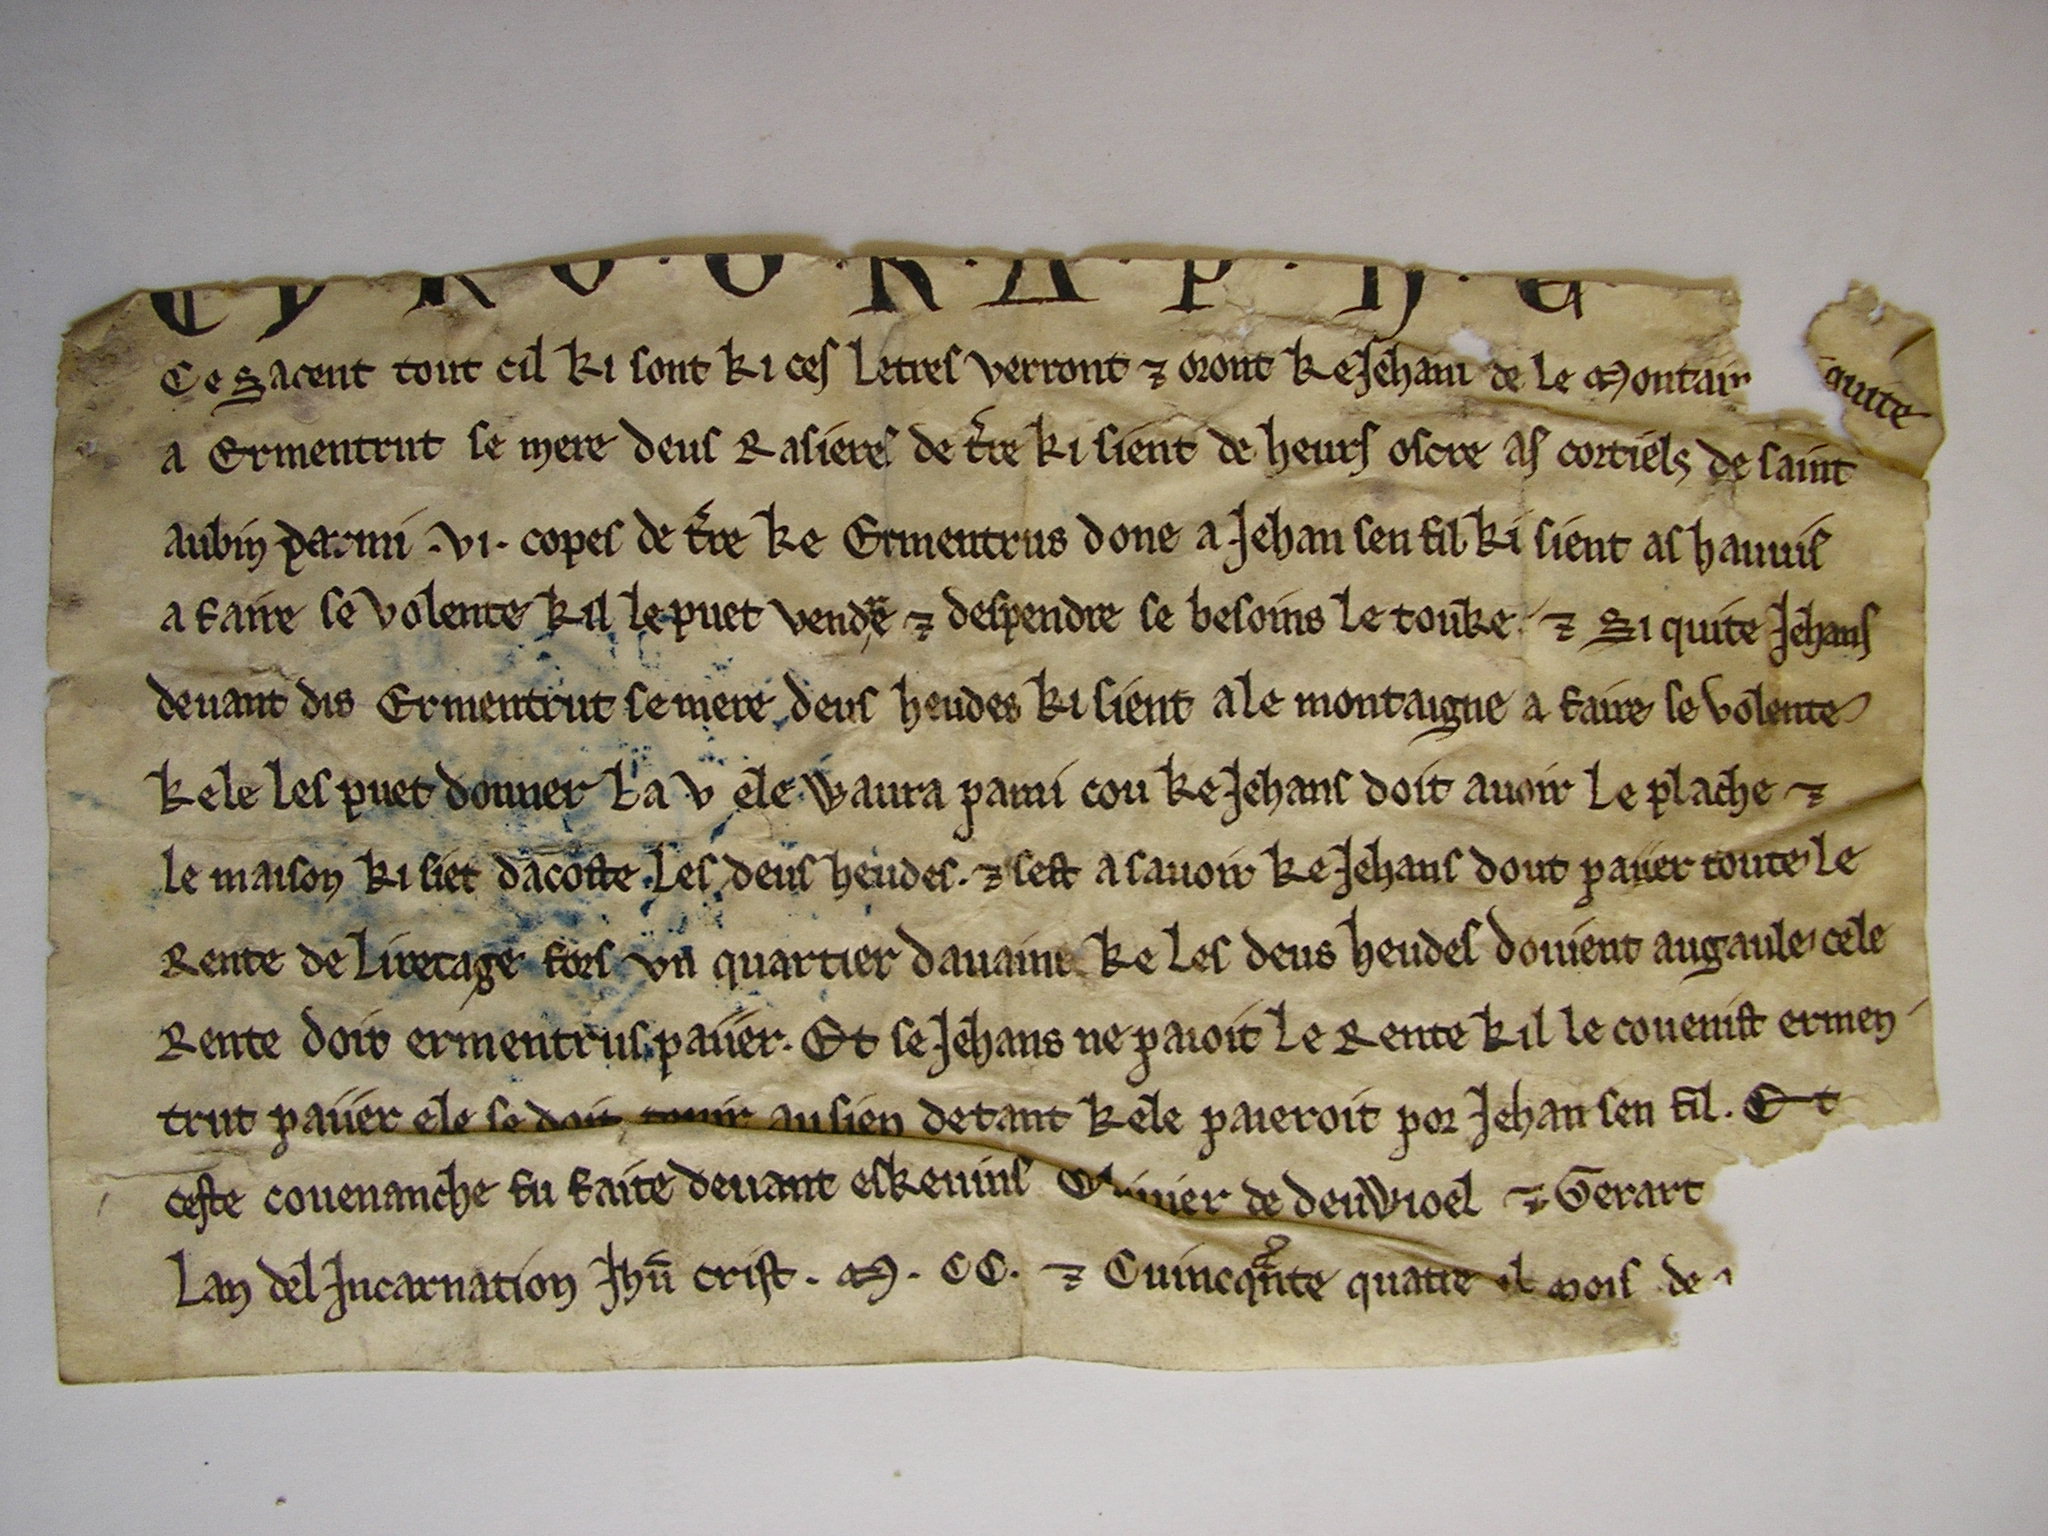 CYROGRAPHE
Ce sacent tout cil ki sont ki ces letres verront ⁊ oront ke Jehans de le Montai quite
a Ermentrut se mere deus Rasieres de t̄re ki sient de heurs oscre as cortiels de saint
aubin parmi .vi. copes de t̄re ke Ermentrus done a Jehan sen fil ki sient as hauuis
a faire se volente kil le puet vendre ⁊ despendre se besoins le touke. ⁊ Si quite Jehans
deuant dis Ermentrut se mere deus heudes ki sient a le montaigne a faire se volente
kele les puet donner la v ele waura parmi cou ke Jehans doit auoir le plache ⁊
le maison ki siet dacoste les deus heudes. ⁊ sest a sauoir ke Jehans doit paiier toute le
Rente de liretage fors vn quartier dauaine ke les deus heudes doiuent au gaule cele
Rente doit ermentrus paiier. Et se Jehans ne paioit le Rente kil le couenist ermen
trut paiier ele se doit tenir au sien de tant kele paieroit por Jehan sen fil. Et
ceste couenanche fu faite deuant eskeuins de deuwioel ⁊ Gerart
Lan del Incarnation Jhū crist. M. CC. ⁊ Cuincqͣnte quatre il mois de